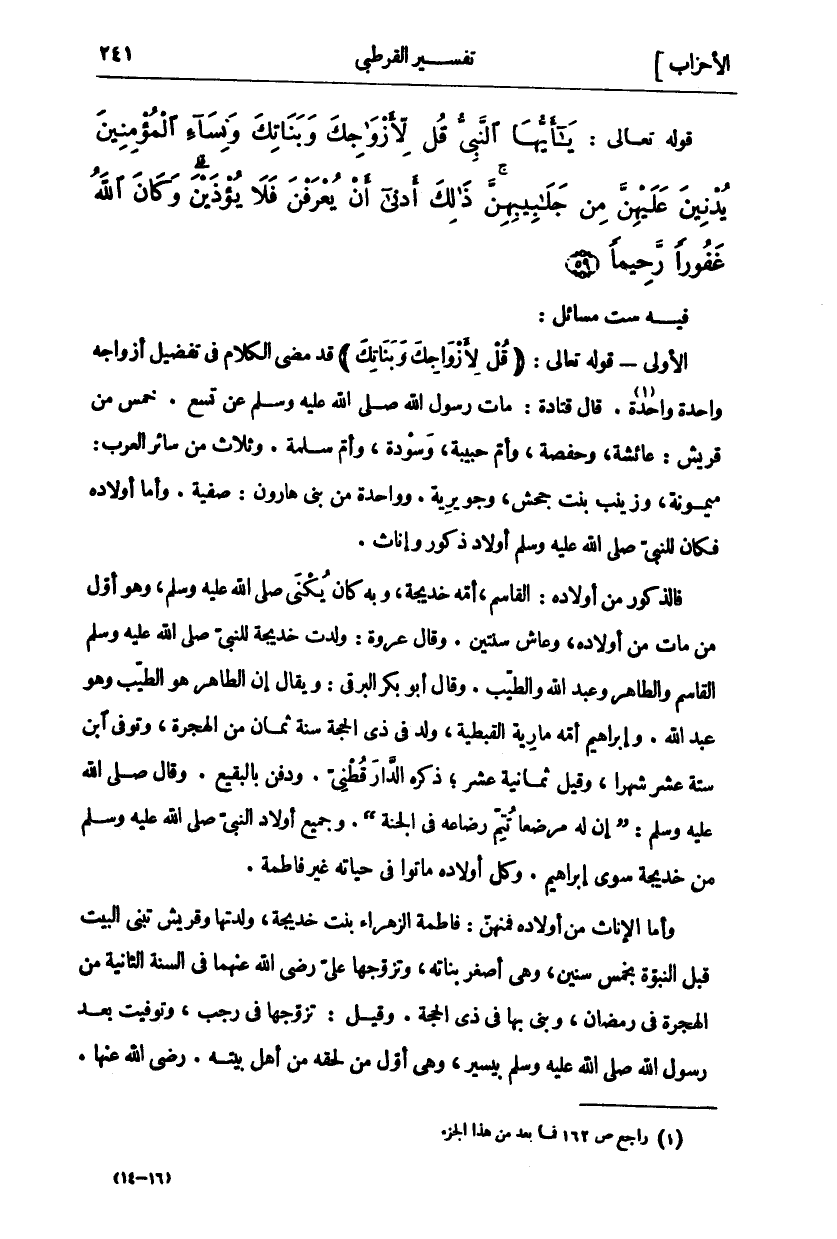 الأحزاب ] تفسير القرطبى ٢٤١
قوله تعالى : يَٰٓأَيُّهَا ٱلنَّبِىُّ قُل لِّأَزْوَٰجِكَ وَبَنَاتِكَ وَنِسَآءِ ٱلْمُؤْمِنِينَ
يُدْنِينَ عَلَيْهِنَّ مِن جَلَٰبِيبِهِنَّ ۚ ذَٰلِكَ أَدْنَىٰٓ أَنْ يُعْرَفْنَ فَلَا يُؤْذَيْنَ ۗ وَكَانَ ٱللَّهُ
غَفُوراً رَّحِيماً ﴿٥٩﴾
فيه ست مسائل :
الأولى — قوله تعالى : ﴿ قُلْ لِأَزْوَاجِكَ وَبَنَاتِكَ ﴾ قد مضى الكلام فى تفضيل أزواجه
واحدة واحدة (١) . قال قتادة : مات رسول الله صلى الله عليه وسلم عن تسع . خمس من
قريش : عائشة، وحفصة ، وأمّ حبيبة، وَسَوْدة ، وأمّ سلمة . وثلاث من سائر العرب:
ميمونة، وزينب بنت جحش، وجويرية . وواحدة من بنى هارون : صفية . وأما أولاده
فكان للنبىّ صلى الله عليه وسلم أولاد ذكور وإناث .
فالذكور من أولاده : القاسم ، أمّه خديجة، وبه كان يُكْنَى صلى الله عليه وسلم، وهو أوّل
من مات من أولاده، وعاش سنتين . وقال عروة : ولدت خديجة للنبىّ صلى الله عليه وسلم
القاسم والطاهر وعبد الله والطيّب . وقال أبو بكر البرقى : ويقال إن الطاهر هو الطيّب وهو
عبد الله . وإبراهيم أمّه مارية القبطية ، ولد فى ذى الحجة سنة ثمان من الهجرة ، وتوفى ٱبن
ستة عشر شهرا ، وقيل ثمانية عشر ؛ ذكره الدَّارَقُطْنِىّ . ودفن بالبقيع . وقال صلى الله
عليه وسلم : " إن له مرضعا تُتِمّ رضاعه فى الجنة " . وجميع أولاد النبىّ صلى الله عليه وسلم
من خديجة سوى إبراهيم . وكل أولاده ماتوا فى حياته غير فاطمة .
وأما الإناث من أولاده فمنهنّ : فاطمة الزهراء بنت خديجة، ولدتها وقريش تبنى البيت
قبل النبوّة بخمس سنين، وهى أصغر بناته، وتزوّجها علىّ رضى الله عنهما فى السنة الثانية من
الهجرة فى رمضان ، وبنى بها فى ذى الحجة . وقيل : تزوّجها فى رجب ، وتوفيت بعد
رسول الله صلى الله عليه وسلم بيسير، وهى أوّل من لحقه من أهل بيته . رضى الله عنها .
(١) راجع ص ١٦٢ فما بعد من هذا الجزء.
(١٤–١٦)